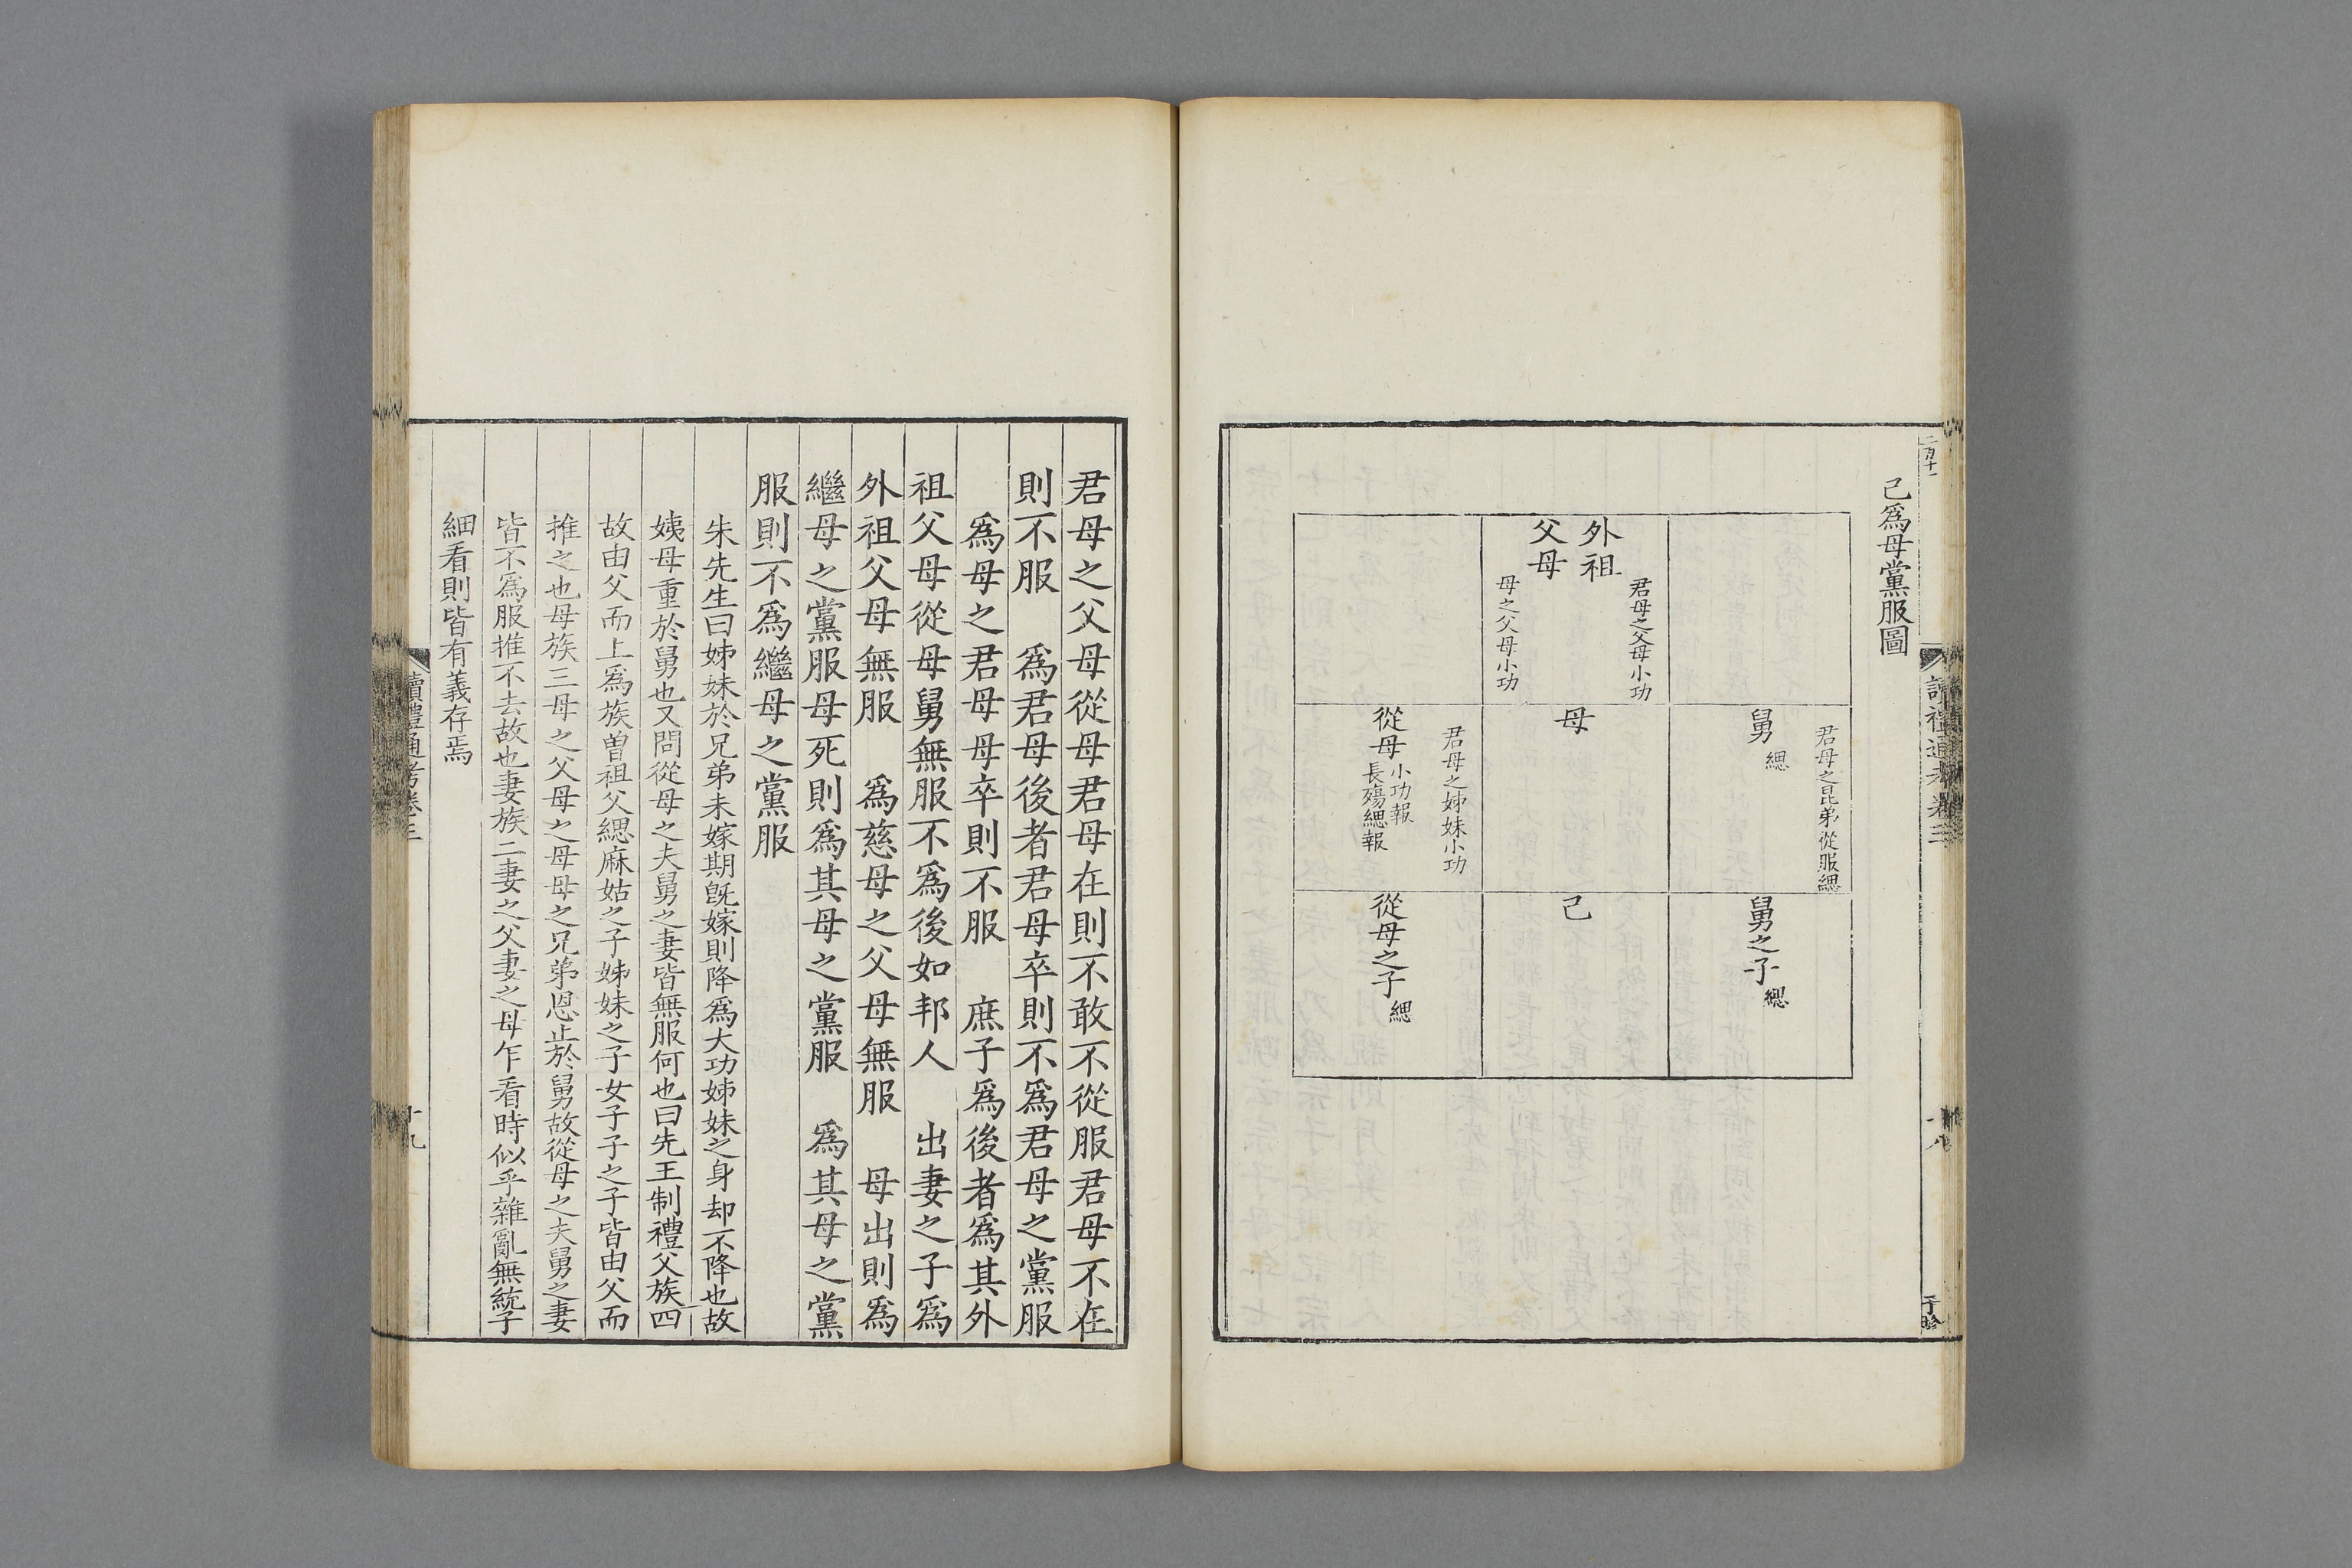 二百十一
讀禮通考卷三
十八
己為母黨服圖
外祖
父母
君母之父母小功
母之父母小功
君母之昆弟從服緦
舅
緦
母
君母之姊妹小功
從母
小功報
長殤緦報
舅之子
緦
己
從母之子
緦
君母之父母從母君母在則不敢不從服君母不在
則不服　為君母後者君母卒則不為君母之黨服
為母之君母母卒則不服　庶子為後者為其外
祖父母從母舅無服不為後如邦人　出妻之子為
外祖父母無服　為慈母之父母無服　母出則為
繼母之黨服母死則為其母之黨服　為其母之黨
服則不為繼母之黨服
朱先生曰姊妹於兄弟未嫁期旣嫁則降為大功姊妹之身却不降也故
姨母重於舅也又問從母之夫舅之妻皆無服何也曰先王制禮父族四
故由父而上為族曾祖父緦麻姑之子姊妹之子女子子之子皆由父而
推之也母族三母之父母之母母之兄弟恩止於舅故從母之夫舅之妻
皆不為服推不去故也妻族二妻之父妻之母乍看時似乎雜亂無統子
細看則皆有義存焉
讀禮通考卷三
十九